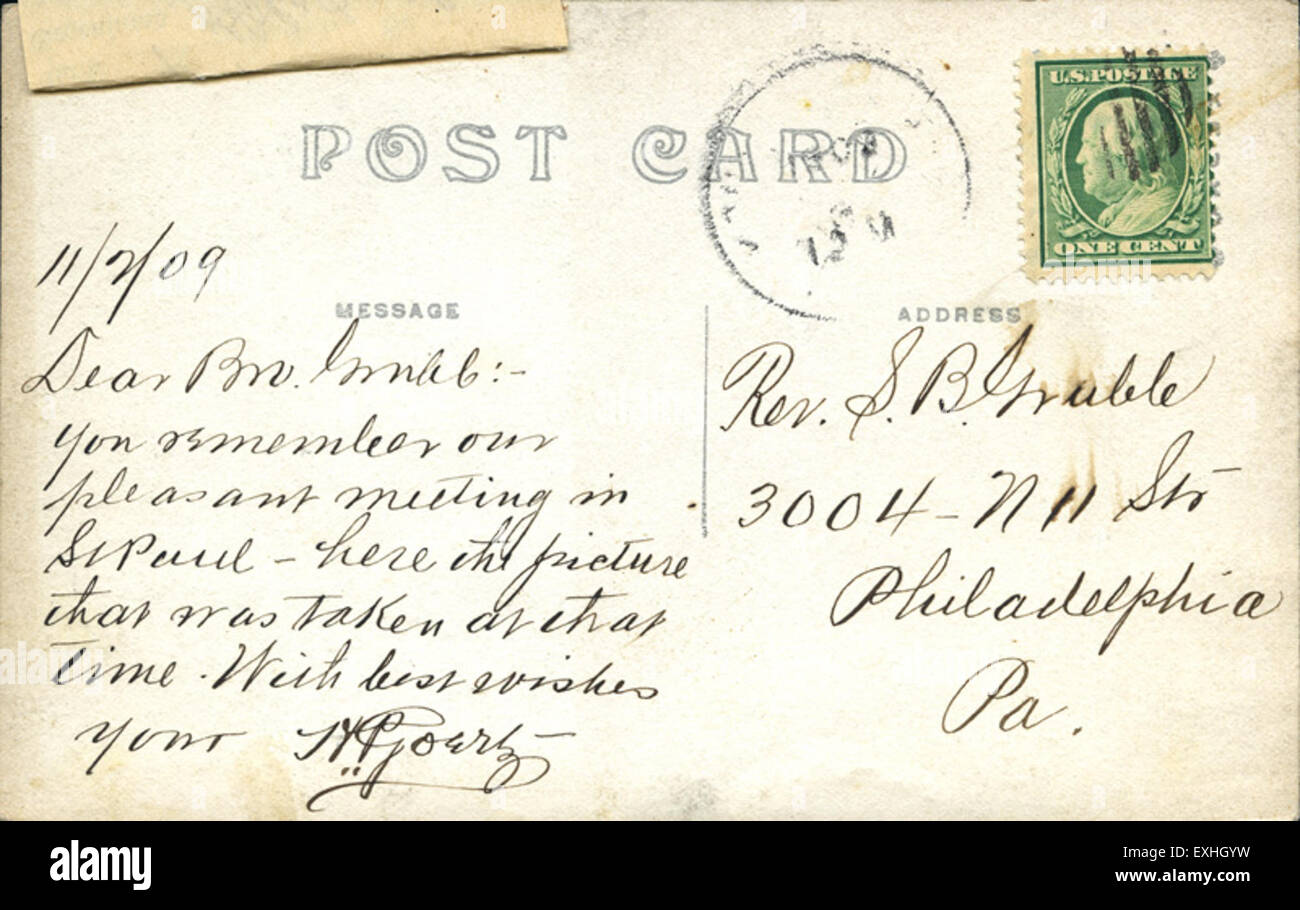 POST CARD
U.S. POSTAGE
ONE CENT
11/2/09
MESSAGE
Dear Bro. Grubb:-
you remember our
pleasant meeting in
St Paul - here the picture
that was taken at that
time. With best wishes
your HPGoertz
ADDRESS
Rev. S. B. Grubb
3004 - N 11 Str
Philadelphia
Pa.
alamy
alamy
Image ID: EXHGYW
www.alamy.com